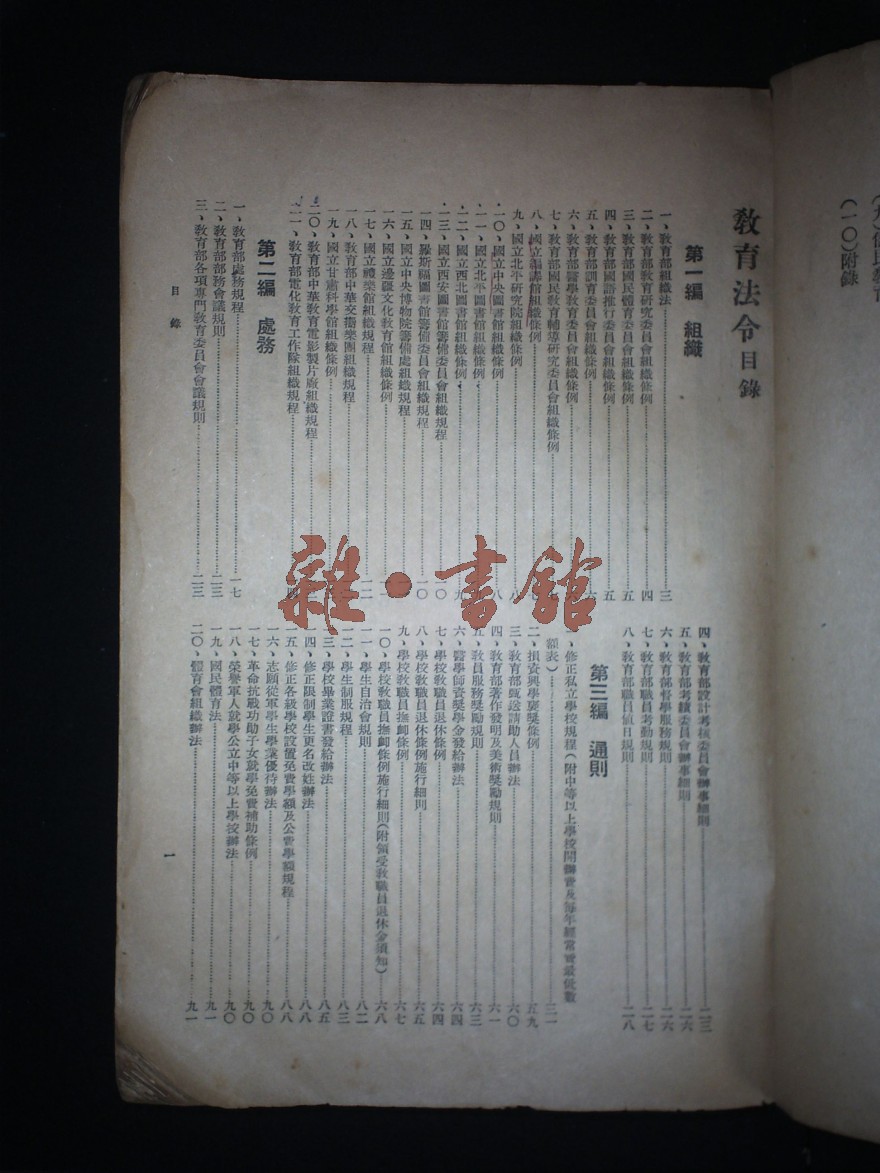 (一〇)附錄
教育法令目錄
第一編 組織
一、教育部組織法……三
二、教育部教育研究委員會組織條例……四
三、教育部國民體育委員會組織條例……五
四、教育部國語推行委員會組織條例……五
五、教育部訓育委員會組織條例……六
六、教育部醫學教育委員會組織條例
七、教育部國民教育輔導研究委員會組織條例
八、國立編譯館組織條例
九、國立北平研究院組織條例……八
一〇、國立中央圖書館組織條例……八
一一、國立北平圖書館組織條例
一二、國立西北圖書館組織條例……九
一三、國立西安圖書館籌備委員會組織規程……一〇
一四、羅斯福圖書館籌備委員會組織規程……一〇
一五、國立中央博物院籌備處組織規程
一六、國立邊疆文化教育館組織條例
一七、國立禮樂館組織規程……一二
一八、教育部中華交響樂團組織規程
一九、國立甘肅科學館組織條例
二〇、教育部中華教育電影製片廠組織規程
二一、教育部電化教育工作隊組織規程
第二編 處務
一、教育部處務規程……一七
二、教育部部務會議規則……二三
三、教育部各項專門教育委員會會議規則……二三
四、教育部設計考核委員會辦事細則……二三
五、教育部考績委員會辦事細則……二六
六、教育部督學服務規則……二六
七、教育部職員考勤規則……二七
八、教育部職員值日規則……二八
第三編 通則
一、修正私立學校規程(附中等以上學校開辦費及每年經常費最低數
額表)……三一
二、捐資興學褒獎條例……五九
三、教育部甄送請助人員辦法……六〇
四、教育部著作發明及美術獎勵規則……六一
五、教員服務獎勵規則……六三
六、醫學師資獎學金發給辦法……六四
七、學校教職員退休條例……六四
八、學校教職員退休條例施行細則……六五
九、學校教職員撫卹條例……六七
一〇、學校教職員撫卹條例施行細則(附領受教職員退休金須知)……六八
一一、學生自治會規則……八二
一二、學生制服規程……八三
一三、學校畢業證書發給辦法……八五
一四、修正限制學生更名改姓辦法……八八
一五、修正各級學校設置免費學額及公費學額規程……八八
一六、志願從軍學生學業優待辦法……九〇
一七、革命抗戰功勛子女就學免費補助條例……九〇
一八、榮譽軍人就學公立中等以上學校辦法……九〇
一九、國民體育法……九一
二〇、體育會組織辦法……九一
目錄
一
雜·書館